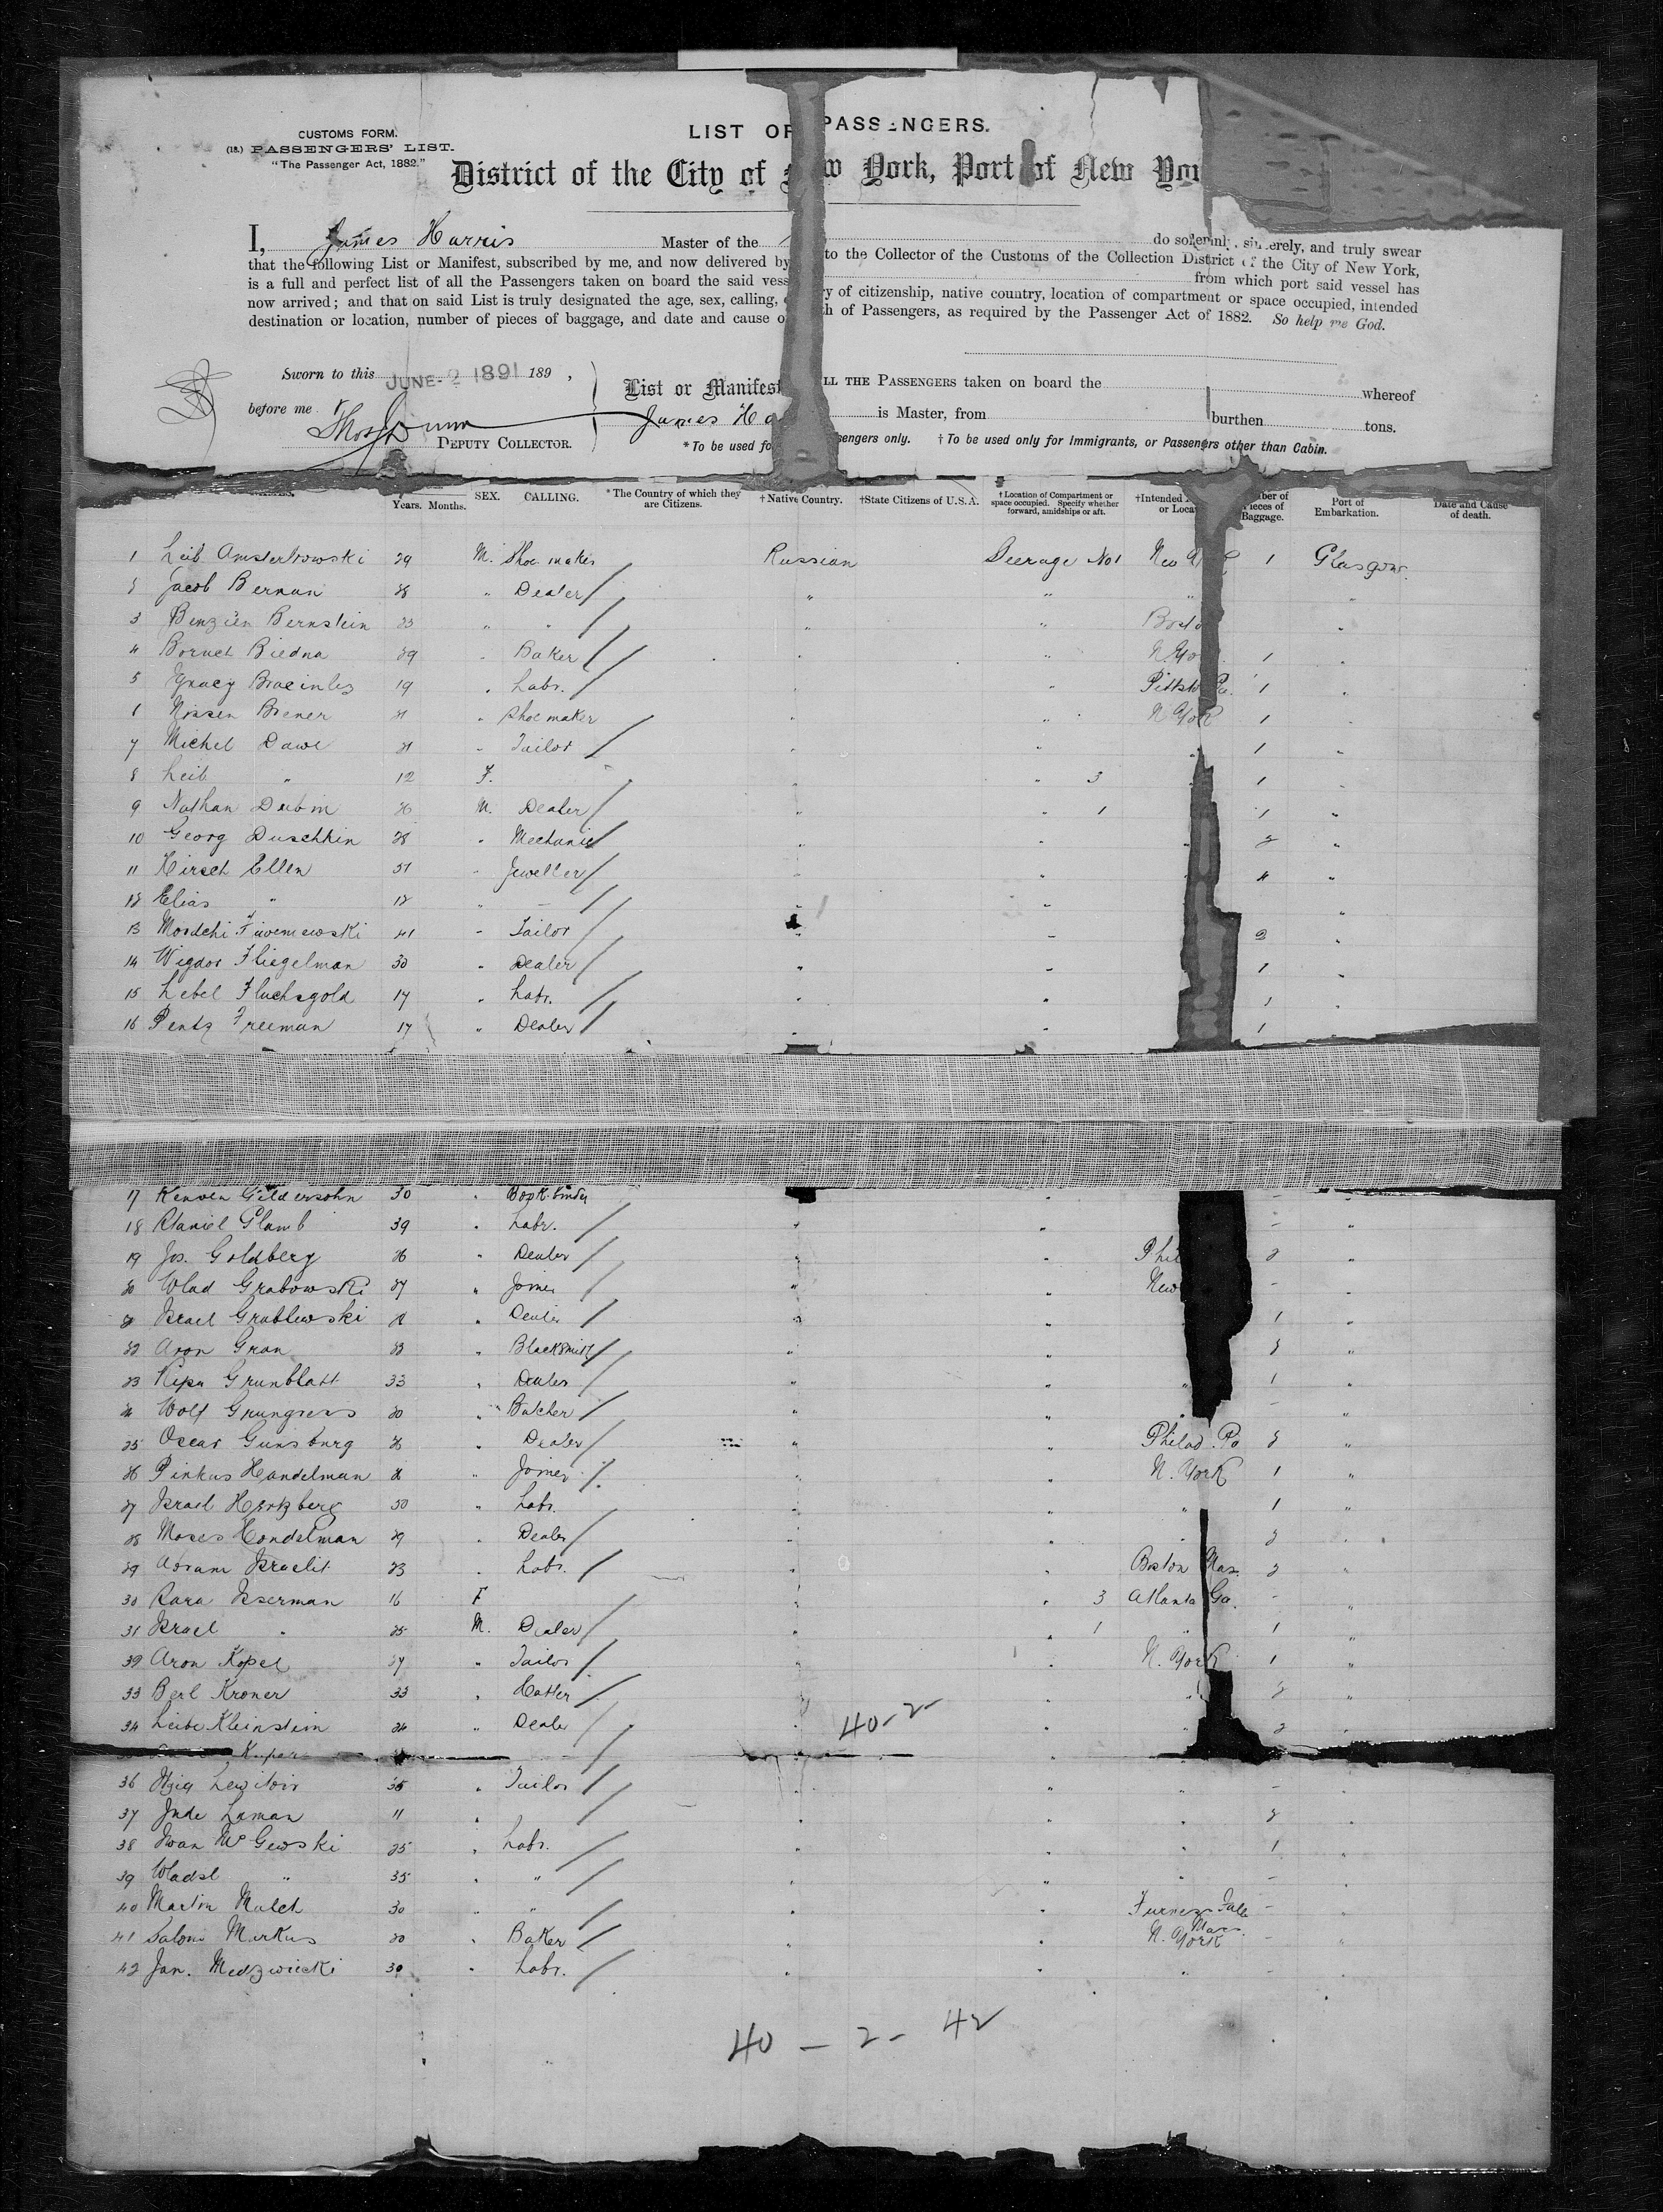 LIST OF PASSENGERS.
CUSTOMS FORM.
(18.) PASSENGERS' LIST.
"The Passenger Act, 1882."
District of the City of New York, Port of New Yor
I, James Harris Master of the do solemnly, sincerely, and truly swear
that the following List or Manifest, subscribed by me, and now delivered by to the Collector of the Customs of the Collection District of the City of New York,
is a full and perfect list of all the Passengers taken on board the said vess from which port said vessel has
now arrived; and that on said List is truly designated the age, sex, calling, ry of citizenship, native country, location of compartment or space occupied, intended
destination or location, number of pieces of baggage, and date and cause o th of Passengers, as required by the Passenger Act of 1882. So help me God.
Sworn to this JUNE-2 1891 189 ,
before me
DEPUTY COLLECTOR.
List or Manifest LL THE PASSENGERS taken on board the whereof
James Ha is Master, from burthen tons.
*To be used fo sengers only. †To be used only for Immigrants, or Passengers other than Cabin.
Years. Months. SEX. CALLING. *The Country of which they are Citizens. †Native Country. †State Citizens of U.S.A. †Location of Compartment or space occupied. Specify whether forward, amidships or aft. †Intended or Loca ber of Pieces of Baggage. Port of Embarkation. Date and Cause of death.
1 Leib 29 M. Shoe maker Russian Steerage No 1 New 1 Glasgow.
2 Jacob Berman 28 " Dealer " " " "
3 Bernstein 23 " " " " Bosto "
4 Boruch Biedna 29 " Baker " " N. Yo 1 "
5 19 " Labr. " " Pittsb Pa. 1 "
6 Nissen Brener " Shoe maker " " N. York 1
7 Michel Dawe " Tailor " " 1 "
8 Leib " 12 F. " " 3 1 "
9 Nathan Dubin 26 M. Dealer " " 1 1 "
10 Georg Duschkin 28 " Mechanic " " 2 "
11 Hirsch Ellen 51 " Jeweller " " 4 "
12 Elias " 12 " - " " "
13 Mordchi 41 " Tailor " " 2 "
14 Wigdor Fliegelman 30 " Dealer " " 1 "
15 Lebel Fluchsgold 17 " Labr. " " 1 "
16 Freeman 17 " Dealer " " 1 "
17 Gildersohn 30 " Book-binder " -
18 Glamb 39 " Labr. " " - "
19 Jos. Goldberg 26 " Dealer " " Phil 2 "
20 Wlad Grabowski 27 " Joiner " " New - "
Israel Grablewski " Dealer " " 1 "
22 Aron Gran 23 " Blacksmith " " 2 "
23 Grunblatt 33 " Dealer " " " 1 "
24 Wolf Grungress 20 " Butcher " " " - "
25 Oscar Gunsburg 26 " Dealer " " Philad. Pa 2 "
26 Pinkus Handelman " Joiner " " N. York 1 "
27 Israel Hertzberg 50 " Labr. " " " 1 "
28 Moses Hondelman 29 " Dealer " " " 2 "
29 Abram Israelit 23 " Labr. " " Boston Mas. 2 "
30 Sara Isserman 16 F " " 3 Atlanta Ga. - "
31 Israel " 25 M. Dealer " " 1 " 1 "
32 Aron Kopel 27 " Tailor " " N. York 1 "
33 Berl Kroner 33 " Hatter " " " 2 "
34 Leibe Kleinstein 24 " Dealer " " " 2 "
40-2-
Kuper
36 35 " Tailor " " " - "
37 Jude Laman 11 " " " 2 "
38 Iwan McGewski 25 " Labr. " " " 1 "
39 Wladsl " 35 " " " " " - "
40 Martin Mulch 30 " " " " Furners Falls Mass - "
41 Salom Markus 20 " Baker " " N. York - "
42 Jan. Medzwiecki 30 " Labr. " " " - "
40 - 2 - 42